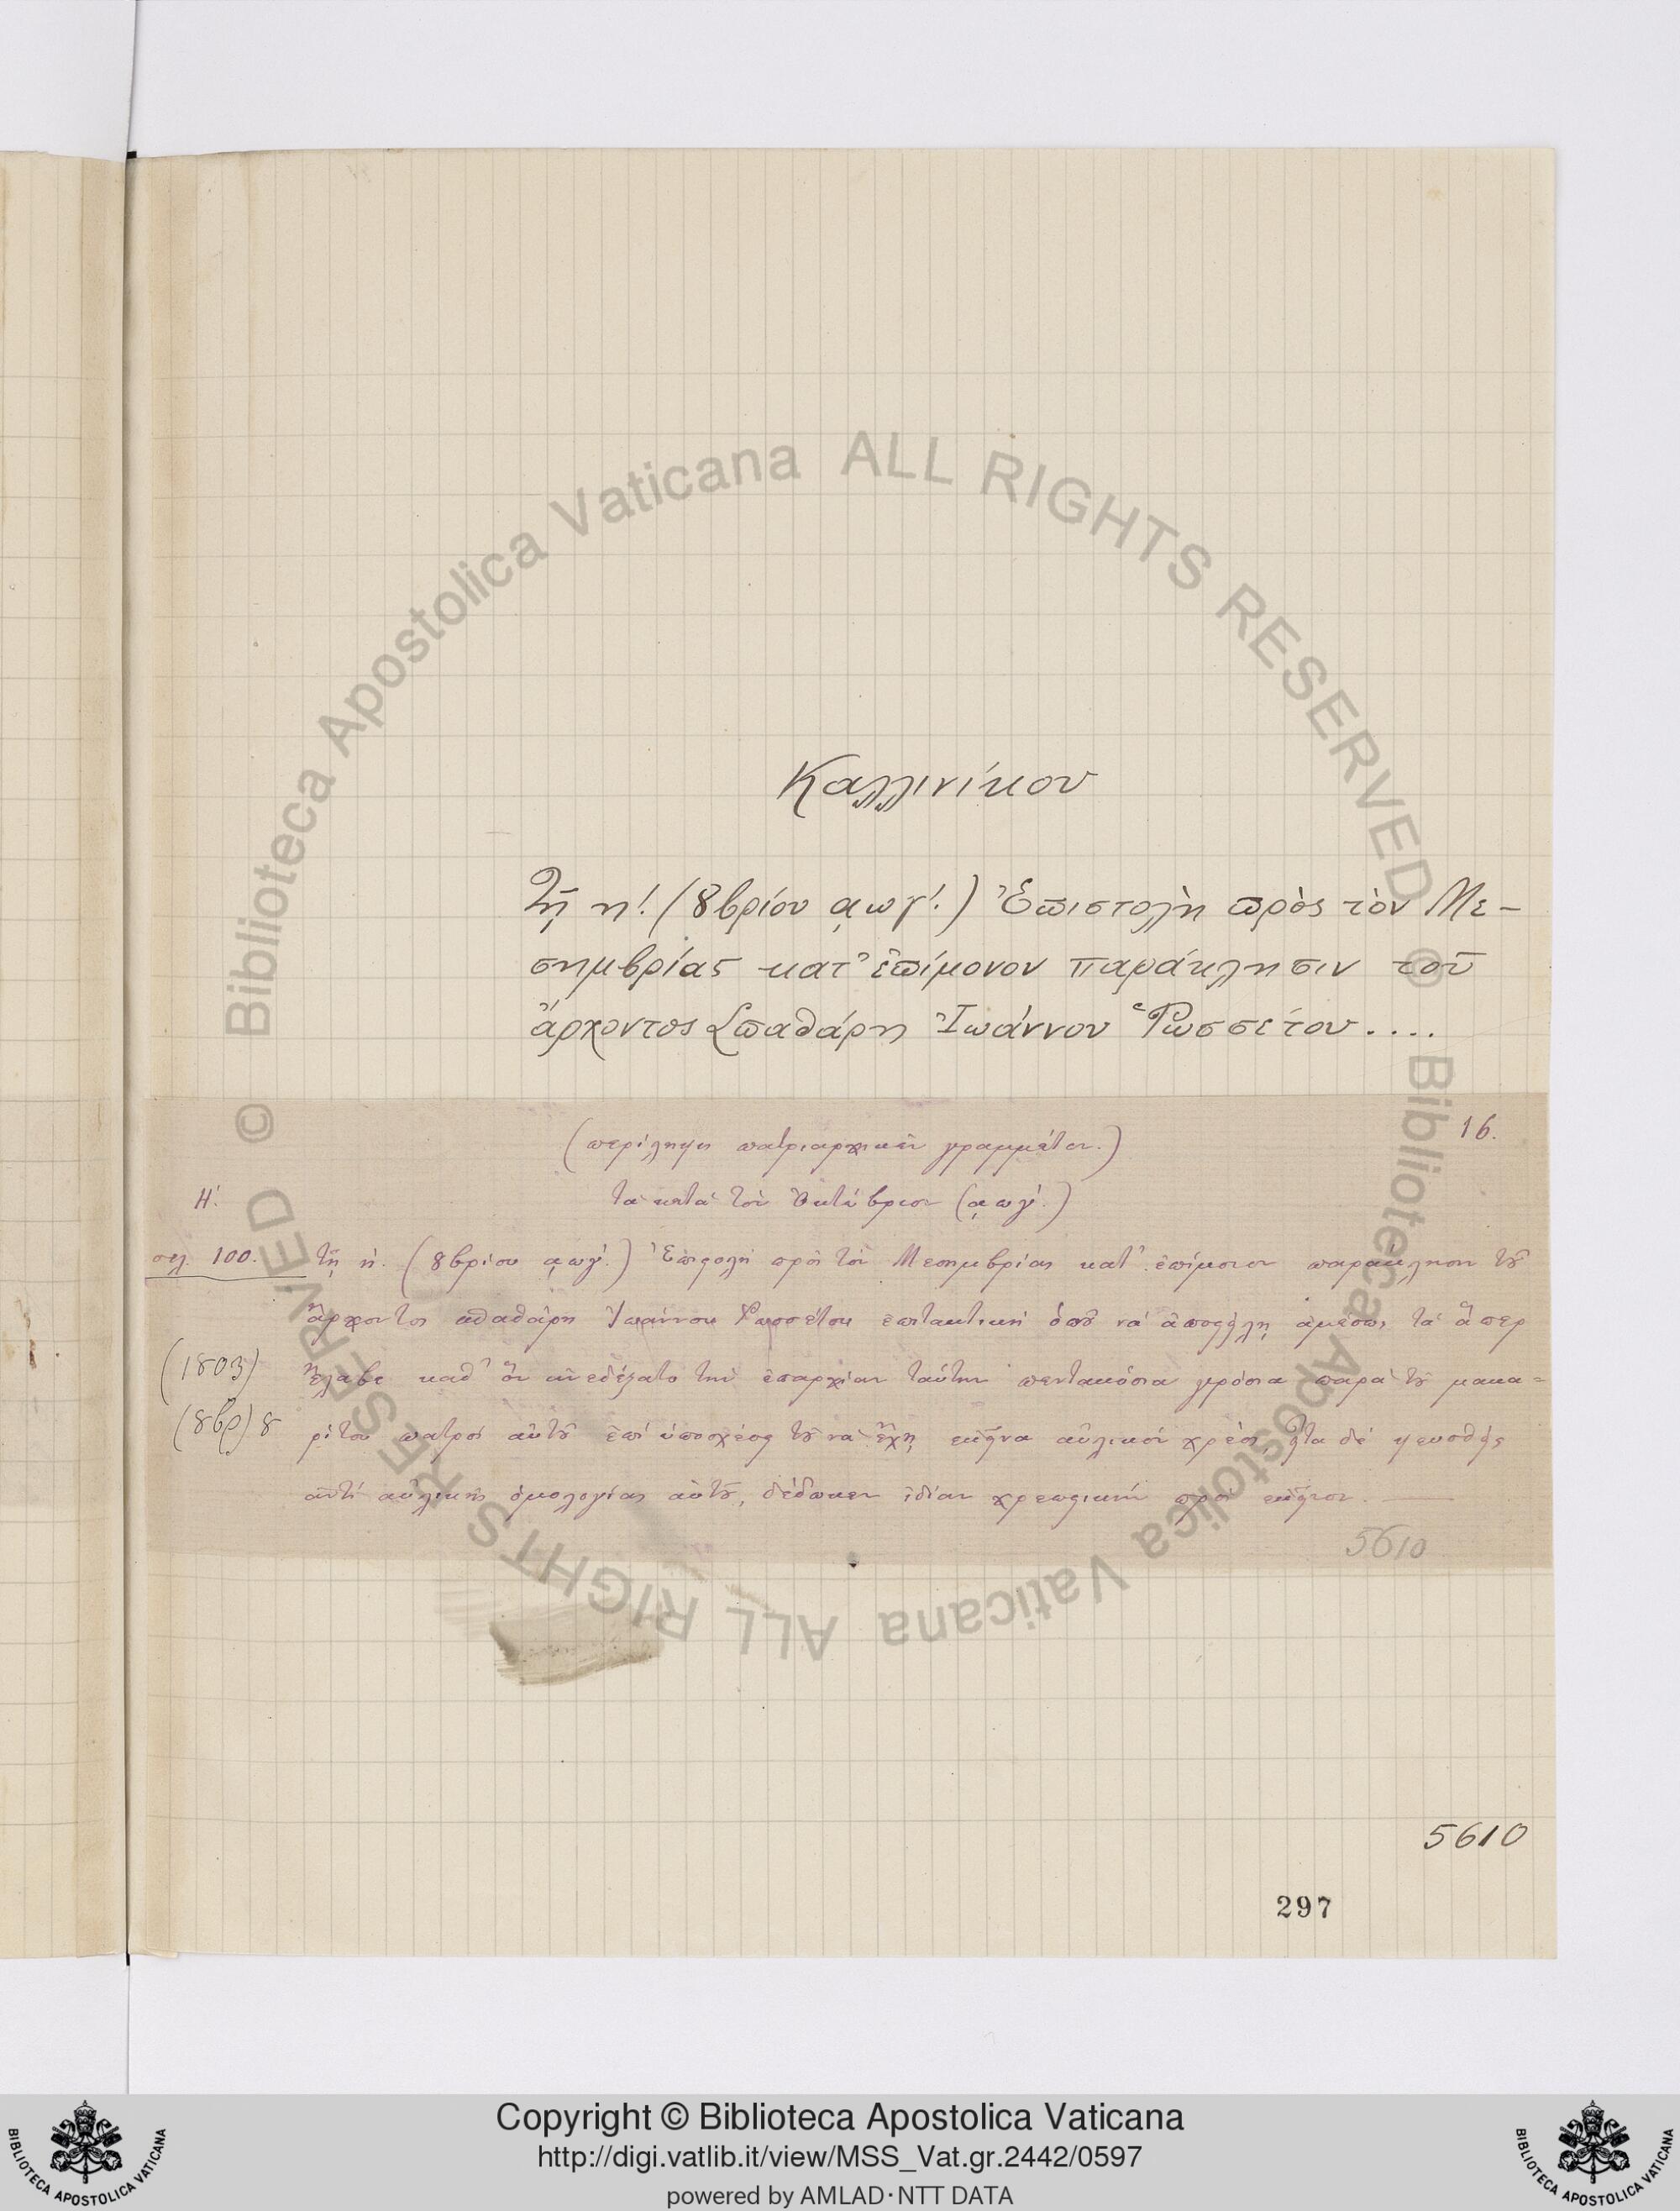 Καλλινίκου
Τῇ η΄. (8βρίου ͵αωγ΄.) Ἐπιστολὴ πρὸς τὸν Με-
σημβρίας κατ' ἐπίμονον παράκλησιν τοῦ
ἄρχοντος Σπαθάρη Ἰωάννου Ῥωσσέτου....
(περίληψις πατριαρχικῶν γραμμάτων.)
16.
Η΄.
τὰ κατὰ τὸν Ὀκτώβριον (͵αωγ΄.)
σελ. 100.
τῇ η΄. (8βρίου ͵αωγ΄.) Ἐπιστολὴ πρὸς τὸν Μεσημβρίας κατ' ἐπίμονον παράκλησιν τοῦ
ἄρχοντος σπαθάρη Ἰωάννου Ῥωσσέτου ἐπιτακτικὴ ὅπου νὰ ἀποστείλῃ ἀμέσως τὰ ἅπερ
(1803)
ἔλαβε καθ' ὃν ἀνεδέξατο τὴν ἐπαρχίαν ταύτην πεντακόσια γρόσια παρὰ τοῦ μακα=
(8βρ) 8
ρίτου πατρὸς αὐτοῦ ἐπὶ ὑποσχέσει τοῦ νὰ ἔχῃ ἐκεῖνα αὐλικὸν χρέος, εἶτα δὲ ψευσθεὶς
ἀντὶ αὐλικῆς ὁμολογίας αὐτοῦ, δέδωκεν ἰδίαν χρεωστικὴν πρὸς ἐκεῖνον.
5610
5610
297
© Biblioteca Apostolica Vaticana ALL RIGHTS RESERVED © Biblioteca Apostolica Vaticana ALL RIGHTS RESERVED
Copyright © Biblioteca Apostolica Vaticana
http://digi.vatlib.it/view/MSS_Vat.gr.2442/0597
powered by AMLAD·NTT DATA
BIBLIOTECA APOSTOLICA VATICANA
BIBLIOTECA APOSTOLICA VATICANA